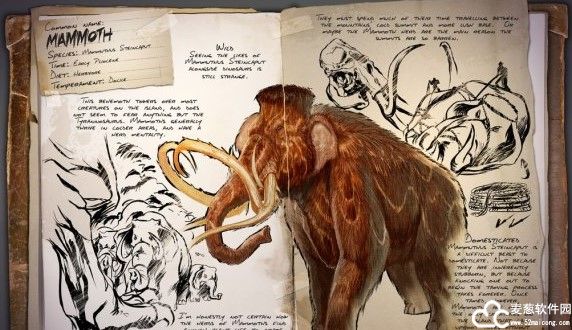 Common Name:
MAMMOTH
Species: Mammuthus Steincaput
Time: Early Pliocene
Diet: Herbivore
Temperament: Docile
Wild
Seeing the likes of
Mammuthus Steincaput
alongside dinosaurs is
still strange.
This behemoth towers over most
creatures on the island, and does
not seem to fear anything but the
Tyrannosaurus. Mammuthus generally
thrive in colder areas, and have a
herd mentality.
I'm honestly not certain how
the herds of Mammuthus find
They must spend much of their time travelling between
the mountains' cold summit and more lush base. Or
maybe the Mammoth herds are the main reason the
summits are so barren.
Domesticated
Mammuthus Steincaput is
a difficult beast to
domesticate. Not because
they are inherently
stubborn, but because
knocking one out to
begin the taming process
takes forever. Once
tamed
麦葱软件园
www.52maicong.com